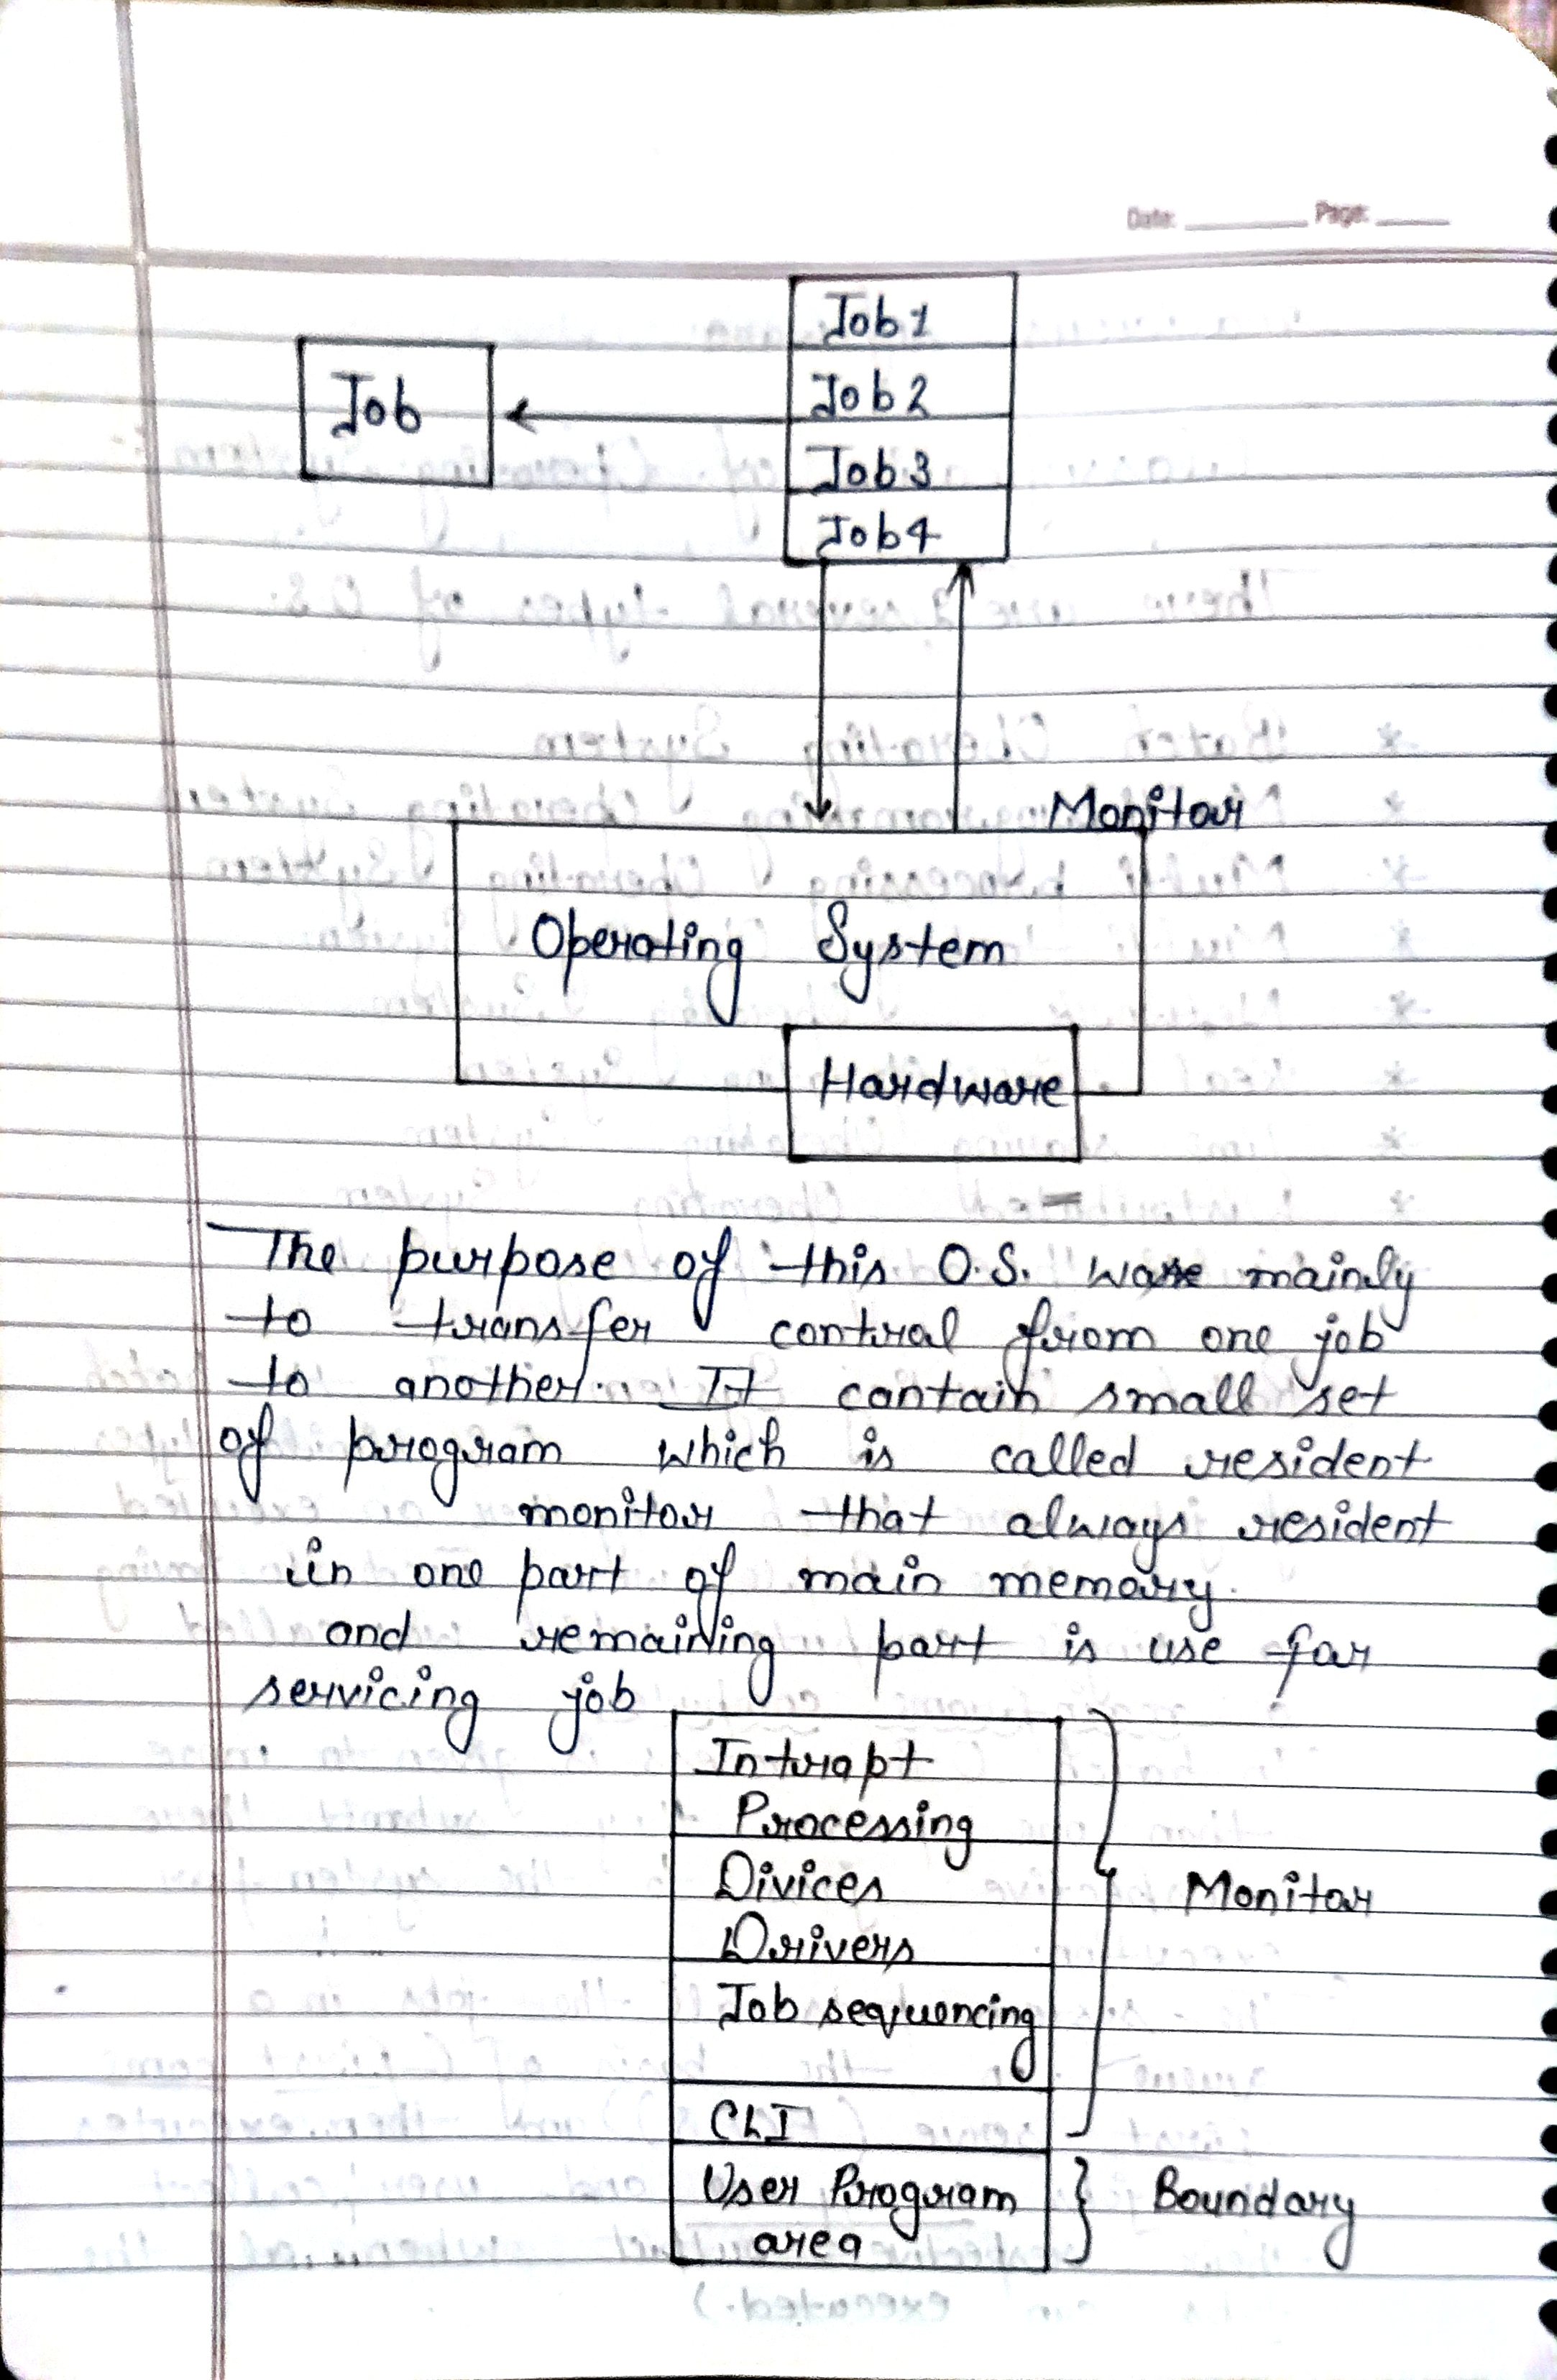 Date: Page:
Job1
Job2
Job3
Job4
Job
Monitor
Operating System
Hardware
The purpose of this O.S. was mainly
to transfer control from one job
to another. It contain small set
of program which is called resident
monitor that always resident
in one part of main memory.
and remaining part is use for
servicing job
Intrapt
Processing
Divices
Drivers
Job sequencing
CLI
Monitor
User Program
area
Boundary